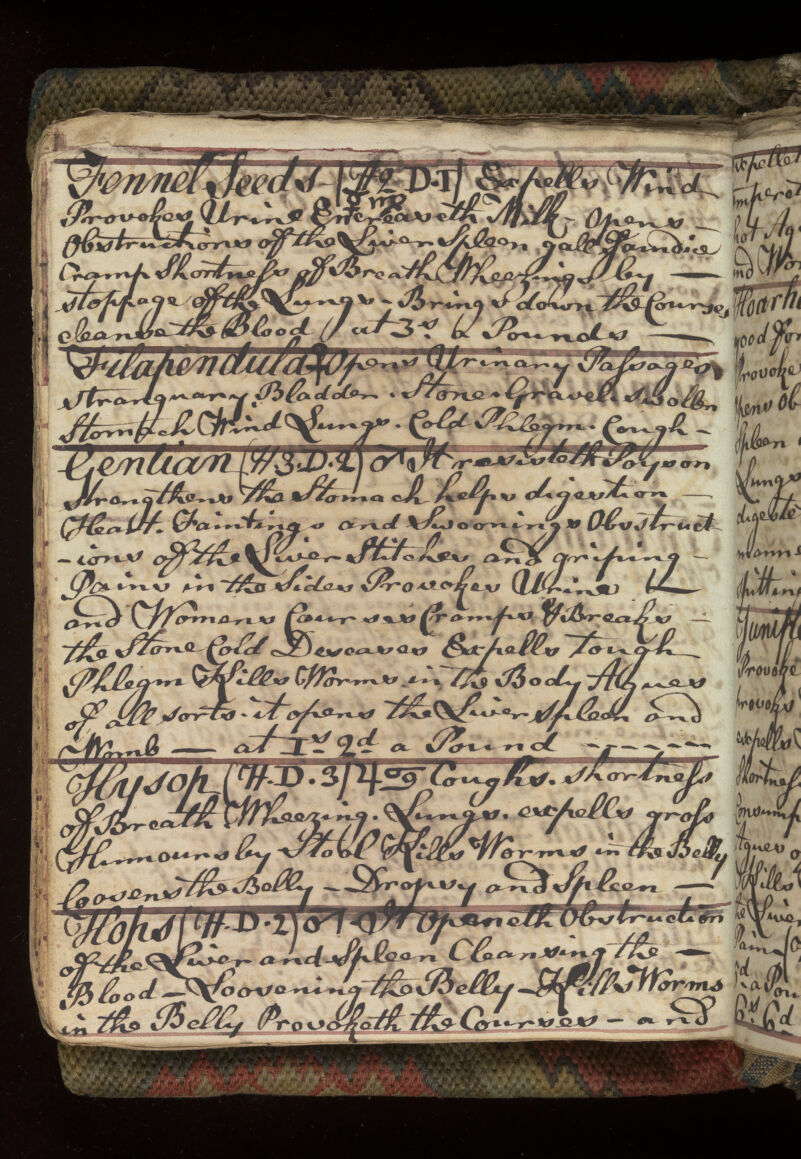 Fennel Seeds (H2 D.1) Expells Wind
Provokes Urine Encreaseth Milk - Opens -
Obstructions off the Liver Spleen gall Jaindice
Cramp Shortness off Breath Wheezings by —
stoppage off the Lungs - Brings down the Courses
cleanse the Blood / at 3s a Pounds —
Filapendula Opens Urinary Passages
stranquary Bladder . Stone . Gravel . swollen
Stomach Wind Lungs . Cold Phlegm . Cough -
Gentian (H3.D.2) ♂ It resisteth Poyson
strengthens the Stomach helps digestion —
Heart . Faintings and Swoonings Obstruct
- ions off the Liver Stitches and griping -
Pains in the Sides Provokes Urine —
and Womens Courses Cramps & Breaks -
the Stone Cold Deseases Expells tough
Phlegm Kills Worms in the Body Agues
of all sorts . it opens the Liver Spleen and
Womb — at 1s 2d a Pound - - - - -
Hysop (H.D.3) Coughs . shortness
off Breath . Wheezing . Lungs . expells gross
Humours by Stool Kills Worms in the Belly
loosens the Belly - Dropsy and Spleen —
Hops (H.D.2) ♂ It Openeth Obstruction
off the Liver and Spleen Cleansing the —
Blood - Loosening the Belly - Kills Worms
in the Belly Provoketh the Courses - and
expellet
hot Ag
nd Wor
Hoarh
good for
Provoke
pens Ob
Spleen
Lungs
digeste
manne
Spittin
Junip
Provoke
provoks
expells
Shortness
Consump
Agues o
Kills
the Liver
Pain
d a Pou
6s 6d